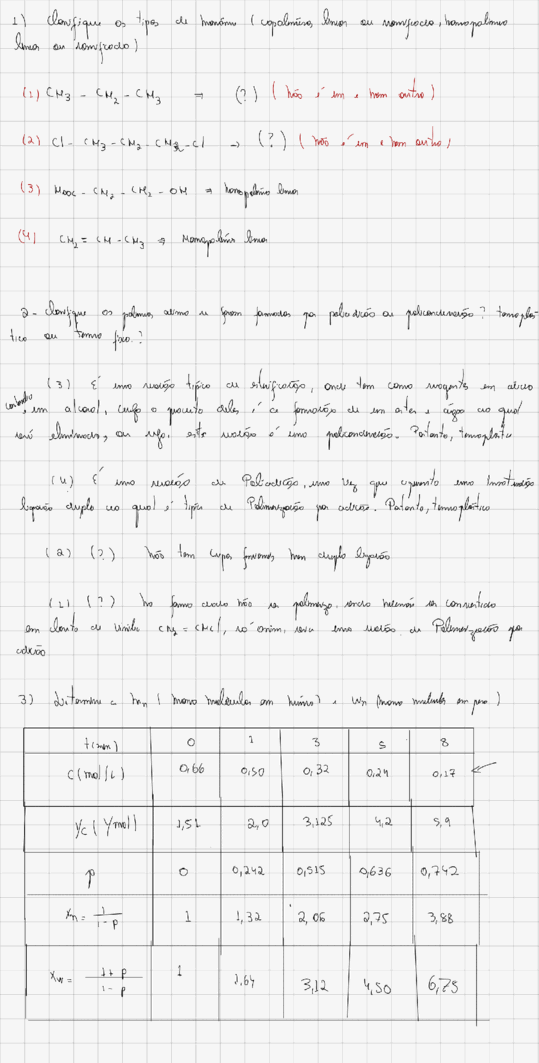 1) Classifique os tipos de monômero (copolímero linear ou ramificado, homopolímero
linear ou ramificado)
(1) CH3 - CH2 - CH3 ⇒ (?) (não é um e nem outro)
(2) Cl - CH3 - CH2 - CH2 - Cl → (?) (não é um e nem outro)
(3) HOOC - CH2 - CH2 - OH ⇒ homopolímero linear
(4) CH2 = CH - CH3 ⇒ Homopolímero linear
2 - Classifique os polímeros acima se foram formados por poliadição ou policondensação? termoplás-
tico ou termo fixo?
(3) É uma reação típica de esterificação, onde tem como reagentes um ácido
um álcool, cujo o produto deles é a formação de um éster e água ao qual
será eliminada, ou seja, esta reação é uma policondensação. Portanto, termoplástico
(4) É uma reação de Poliadição, uma vez que apresenta uma insaturação
ligação dupla ao qual é típica de Polimerização por adição. Portanto, termoplástico
(2) (?) não tem grupos funcionais nem dupla ligação
(1) (?) na forma dada não se polimeriza, sendo necessário ser convertido
em cloreto de vinila CH2 = CHCl, só assim, seria uma reação de Polimerização por
adição
3) Determine a Mn (massa molecular em número) e Mw (massa molecular em peso)
t (min) 0 1 3 5 8
C (mol/L) 0,66 0,50 0,32 0,24 0,17
1/C (L/mol) 1,51 2,0 3,125 4,2 5,9
p 0 0,242 0,515 0,636 0,742
Xn = 1/(1-p) 1 1,32 2,06 2,75 3,88
Xw = (1+p)/(1-p) 1 1,64 3,12 4,50 6,75